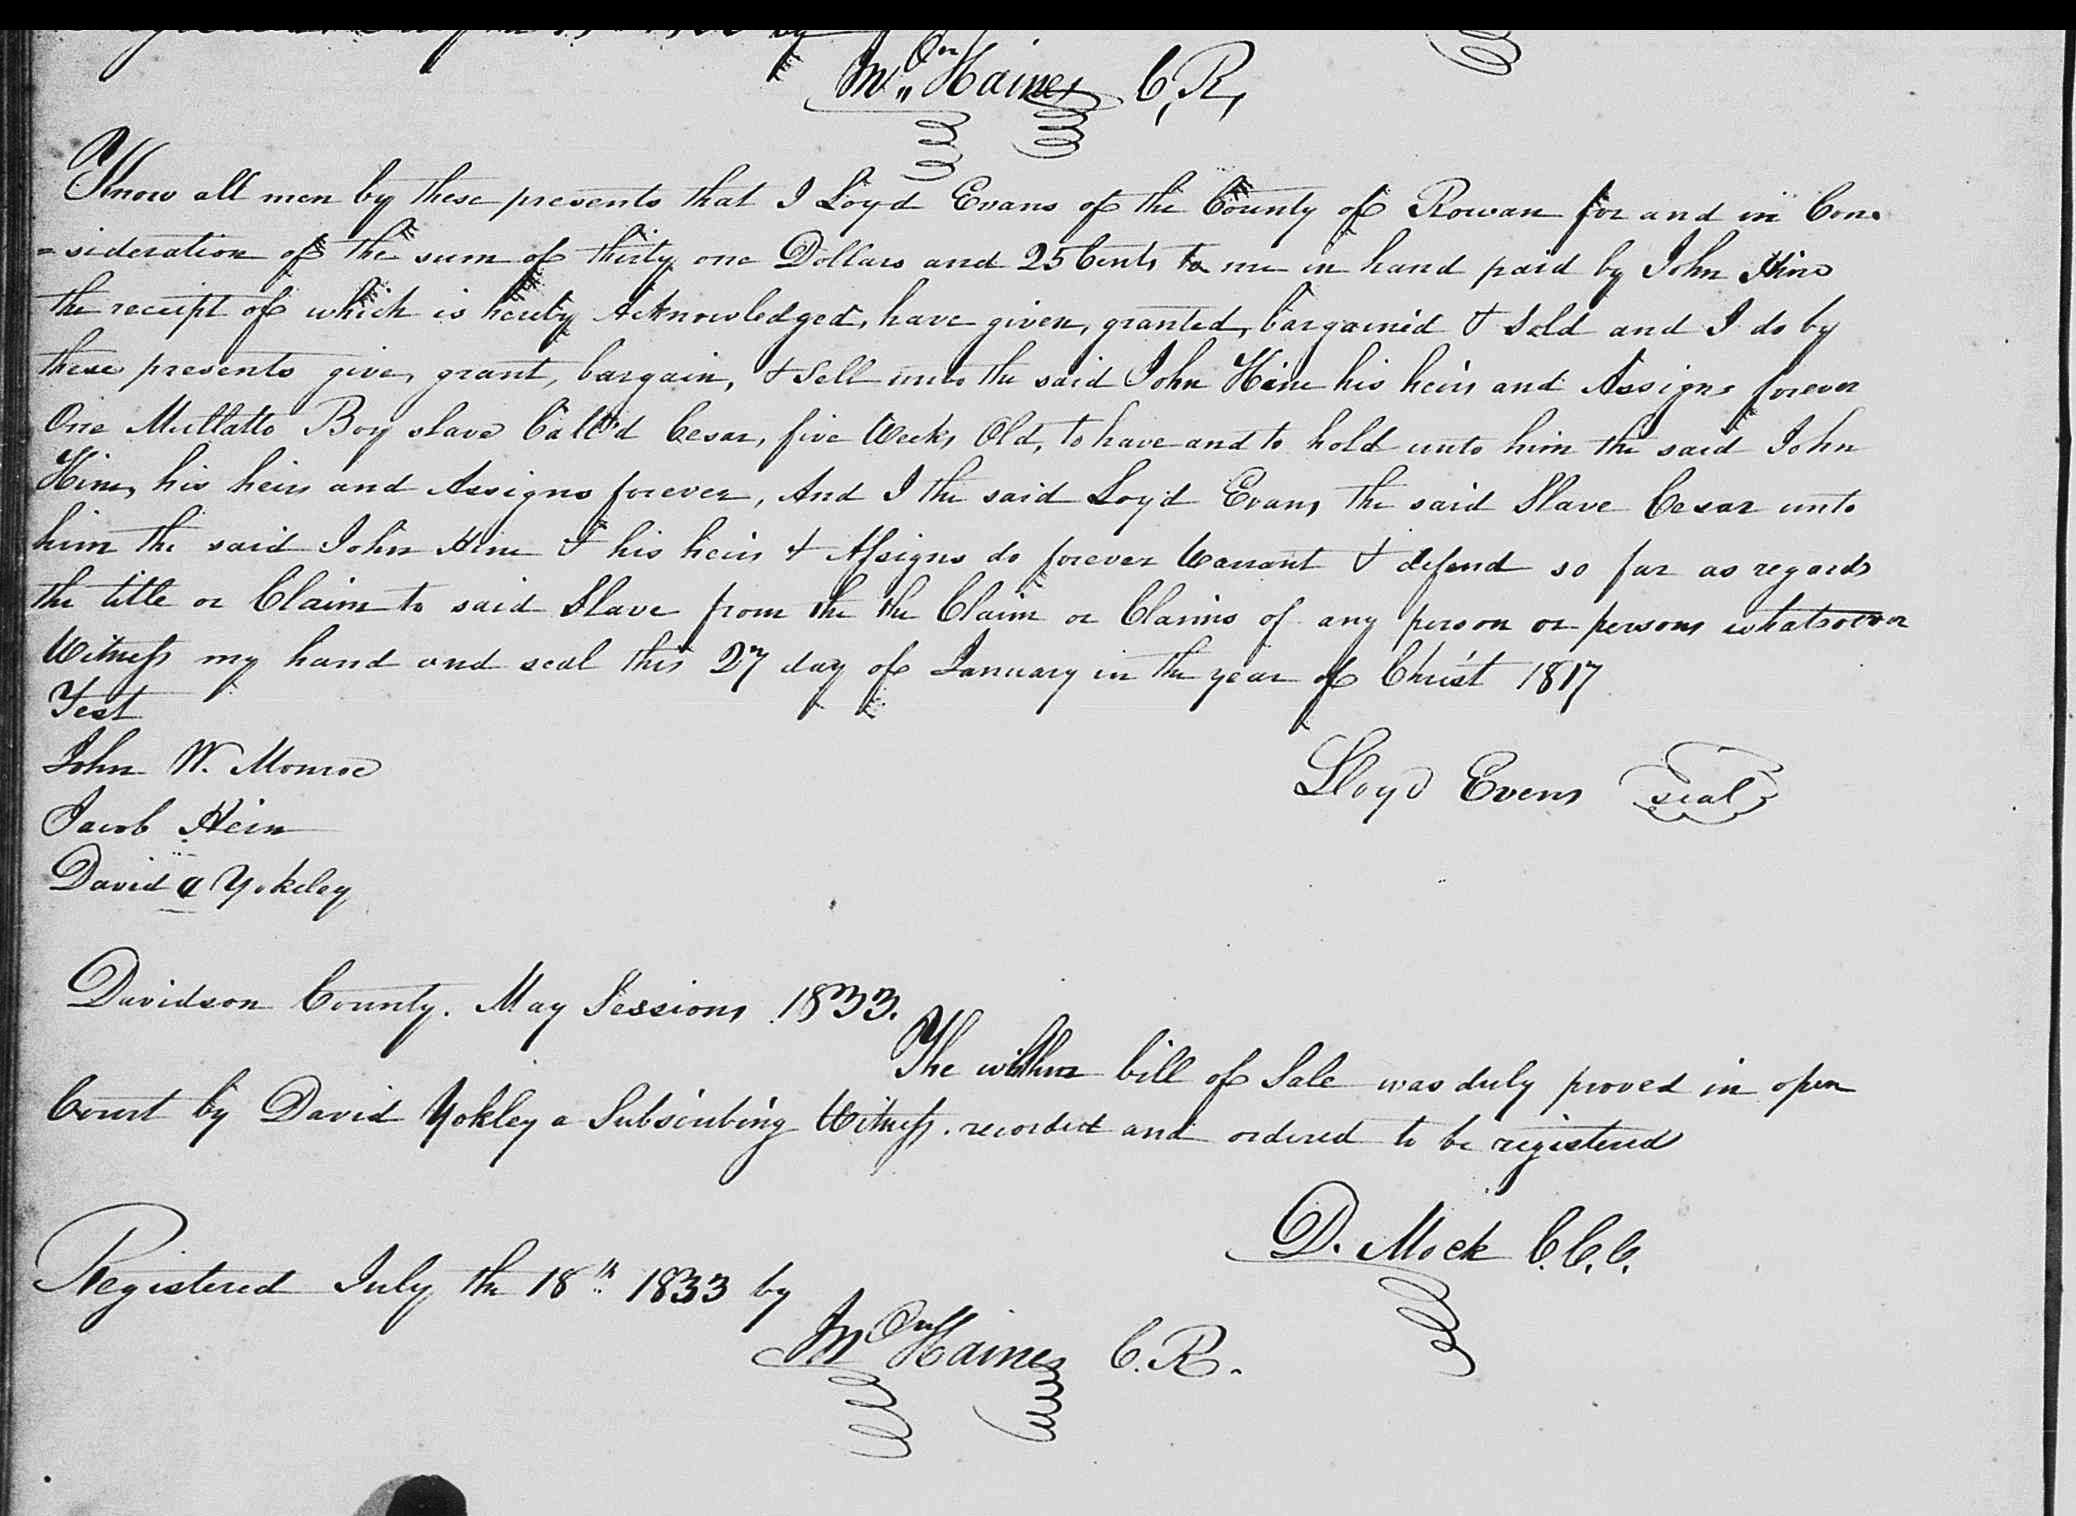 by
Wm Haines C, R,
Know all men by these presents that I Loyd Evans of the County of Rowan for and in Con
=sideration of the sum of thirty one Dollars and 25 Cents to me in hand paid by John Hine
the receipt of which is hereby Acknowledged, have given, granted, bargained & Sold and I do by
these presents give, grant, bargain, & Sell unto the said John Hine his heirs and Assigns forever
One Mullatto Boy slave Call'd Cesar, five Weeks Old, to have and to hold unto him the said John
Hine, his heirs and Assigns forever, And I the said Loyd Evans the said Slave Cesar unto
him the said John Hine & his heirs & Assigns do forever Warrant & defend so far as regards
the title or Claim to said Slave from the the Claim or Claims of any person or persons whatsoever
Witness my hand and seal this 27 day of January in the year of Christ 1817
Test
John W. Monroe
Jacob Hein
David a Yokeley
Lloyd Evens seal
Davidson County. May Sessions 1833.
The within bill of Sale was duly proved in open
Court by David Yokley a Subscribing Witness. recorded and ordered to be registered
D. Mock C.C.C.
Registered July the 18th 1833 by
Wm Haines C.R.